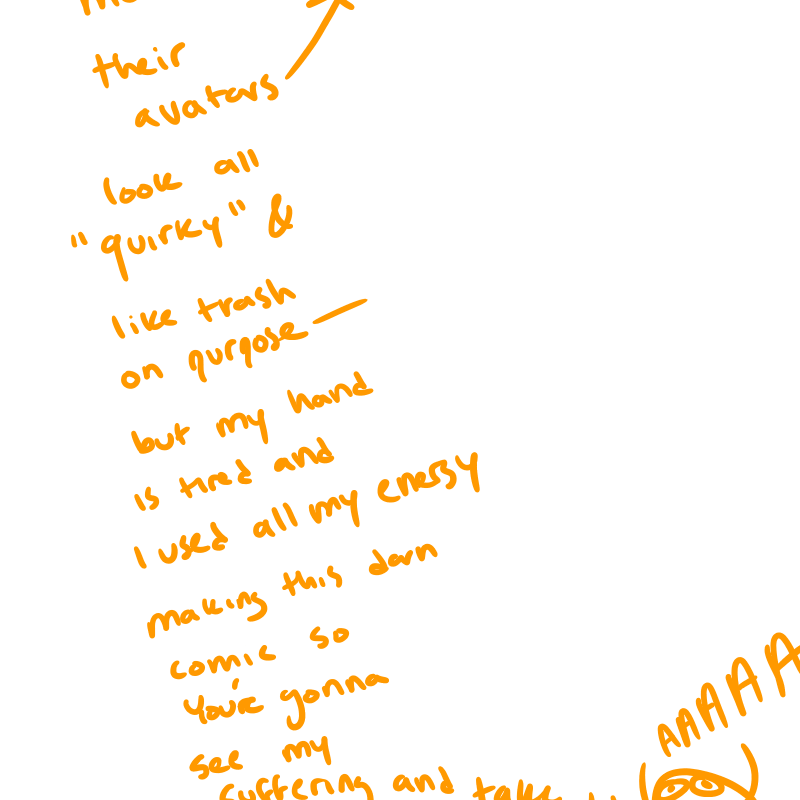 their
avatars
look all
"quirky" &
like trash
on purpose—
but my hand
is tired and
I used all my energy
making this darn
comic so
you're gonna
see my
suffering and take
AAAAA